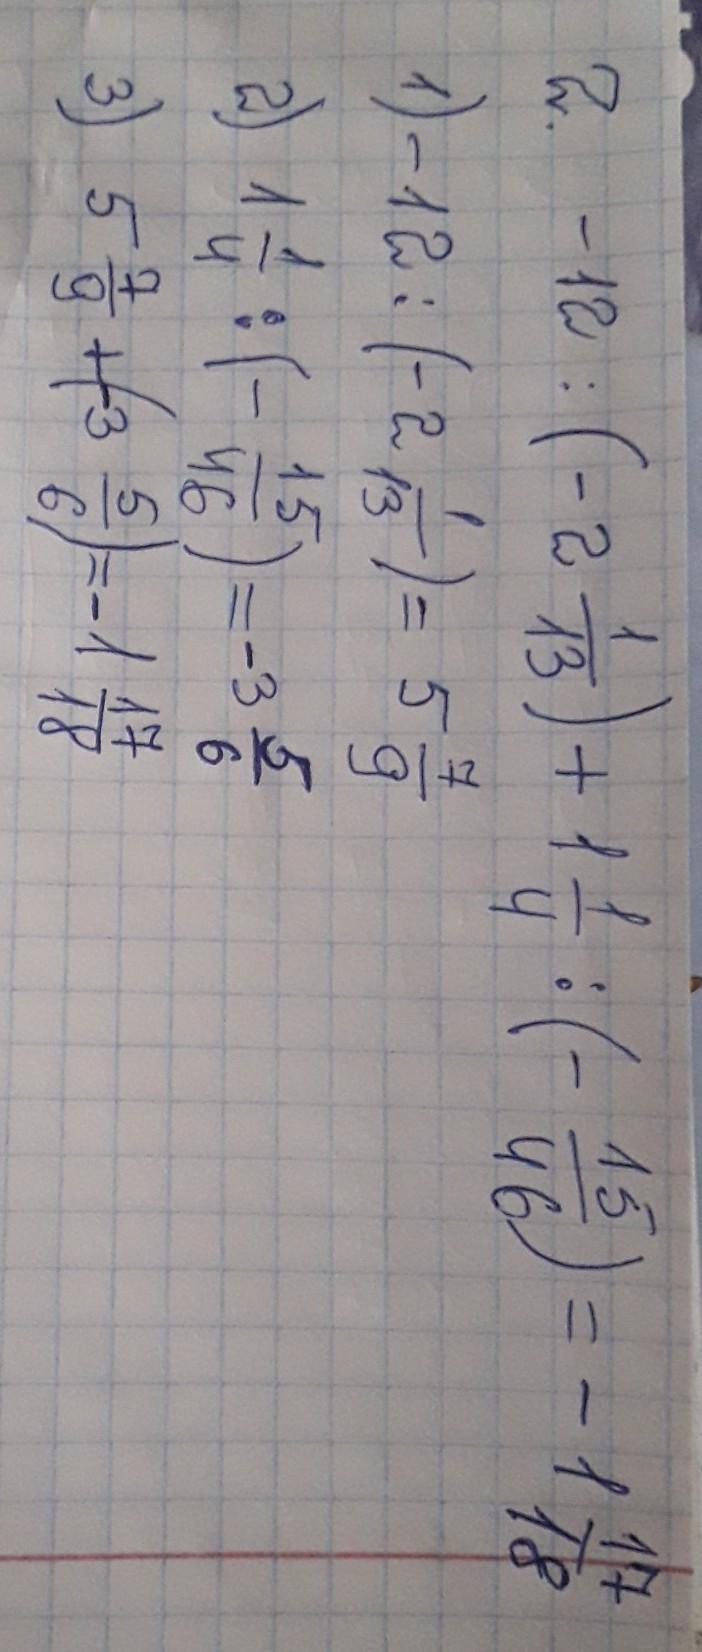 2. -12 : (-2 1/13) + 1 1/4 : (- 15/46) = -1 17/18
1) -12 : (-2 1/13) = 5 7/9
2) 1 1/4 : (- 15/46) = -3 5/6
3) 5 7/9 + (-3 5/6) = -1 17/18